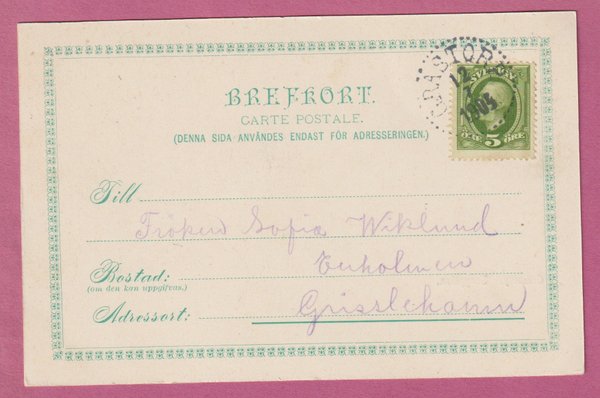 BREFKORT.
CARTE POSTALE.
(DENNA SIDA ANVÄNDES ENDAST FÖR ADRESSERINGEN.)
SVERIGE
5
ÖRE
12
7
1903
Till Fröken Sofia Wiklund
Bostad: Enholmen
(om den kan uppgifvas.)
Adressort: Grisslehamn